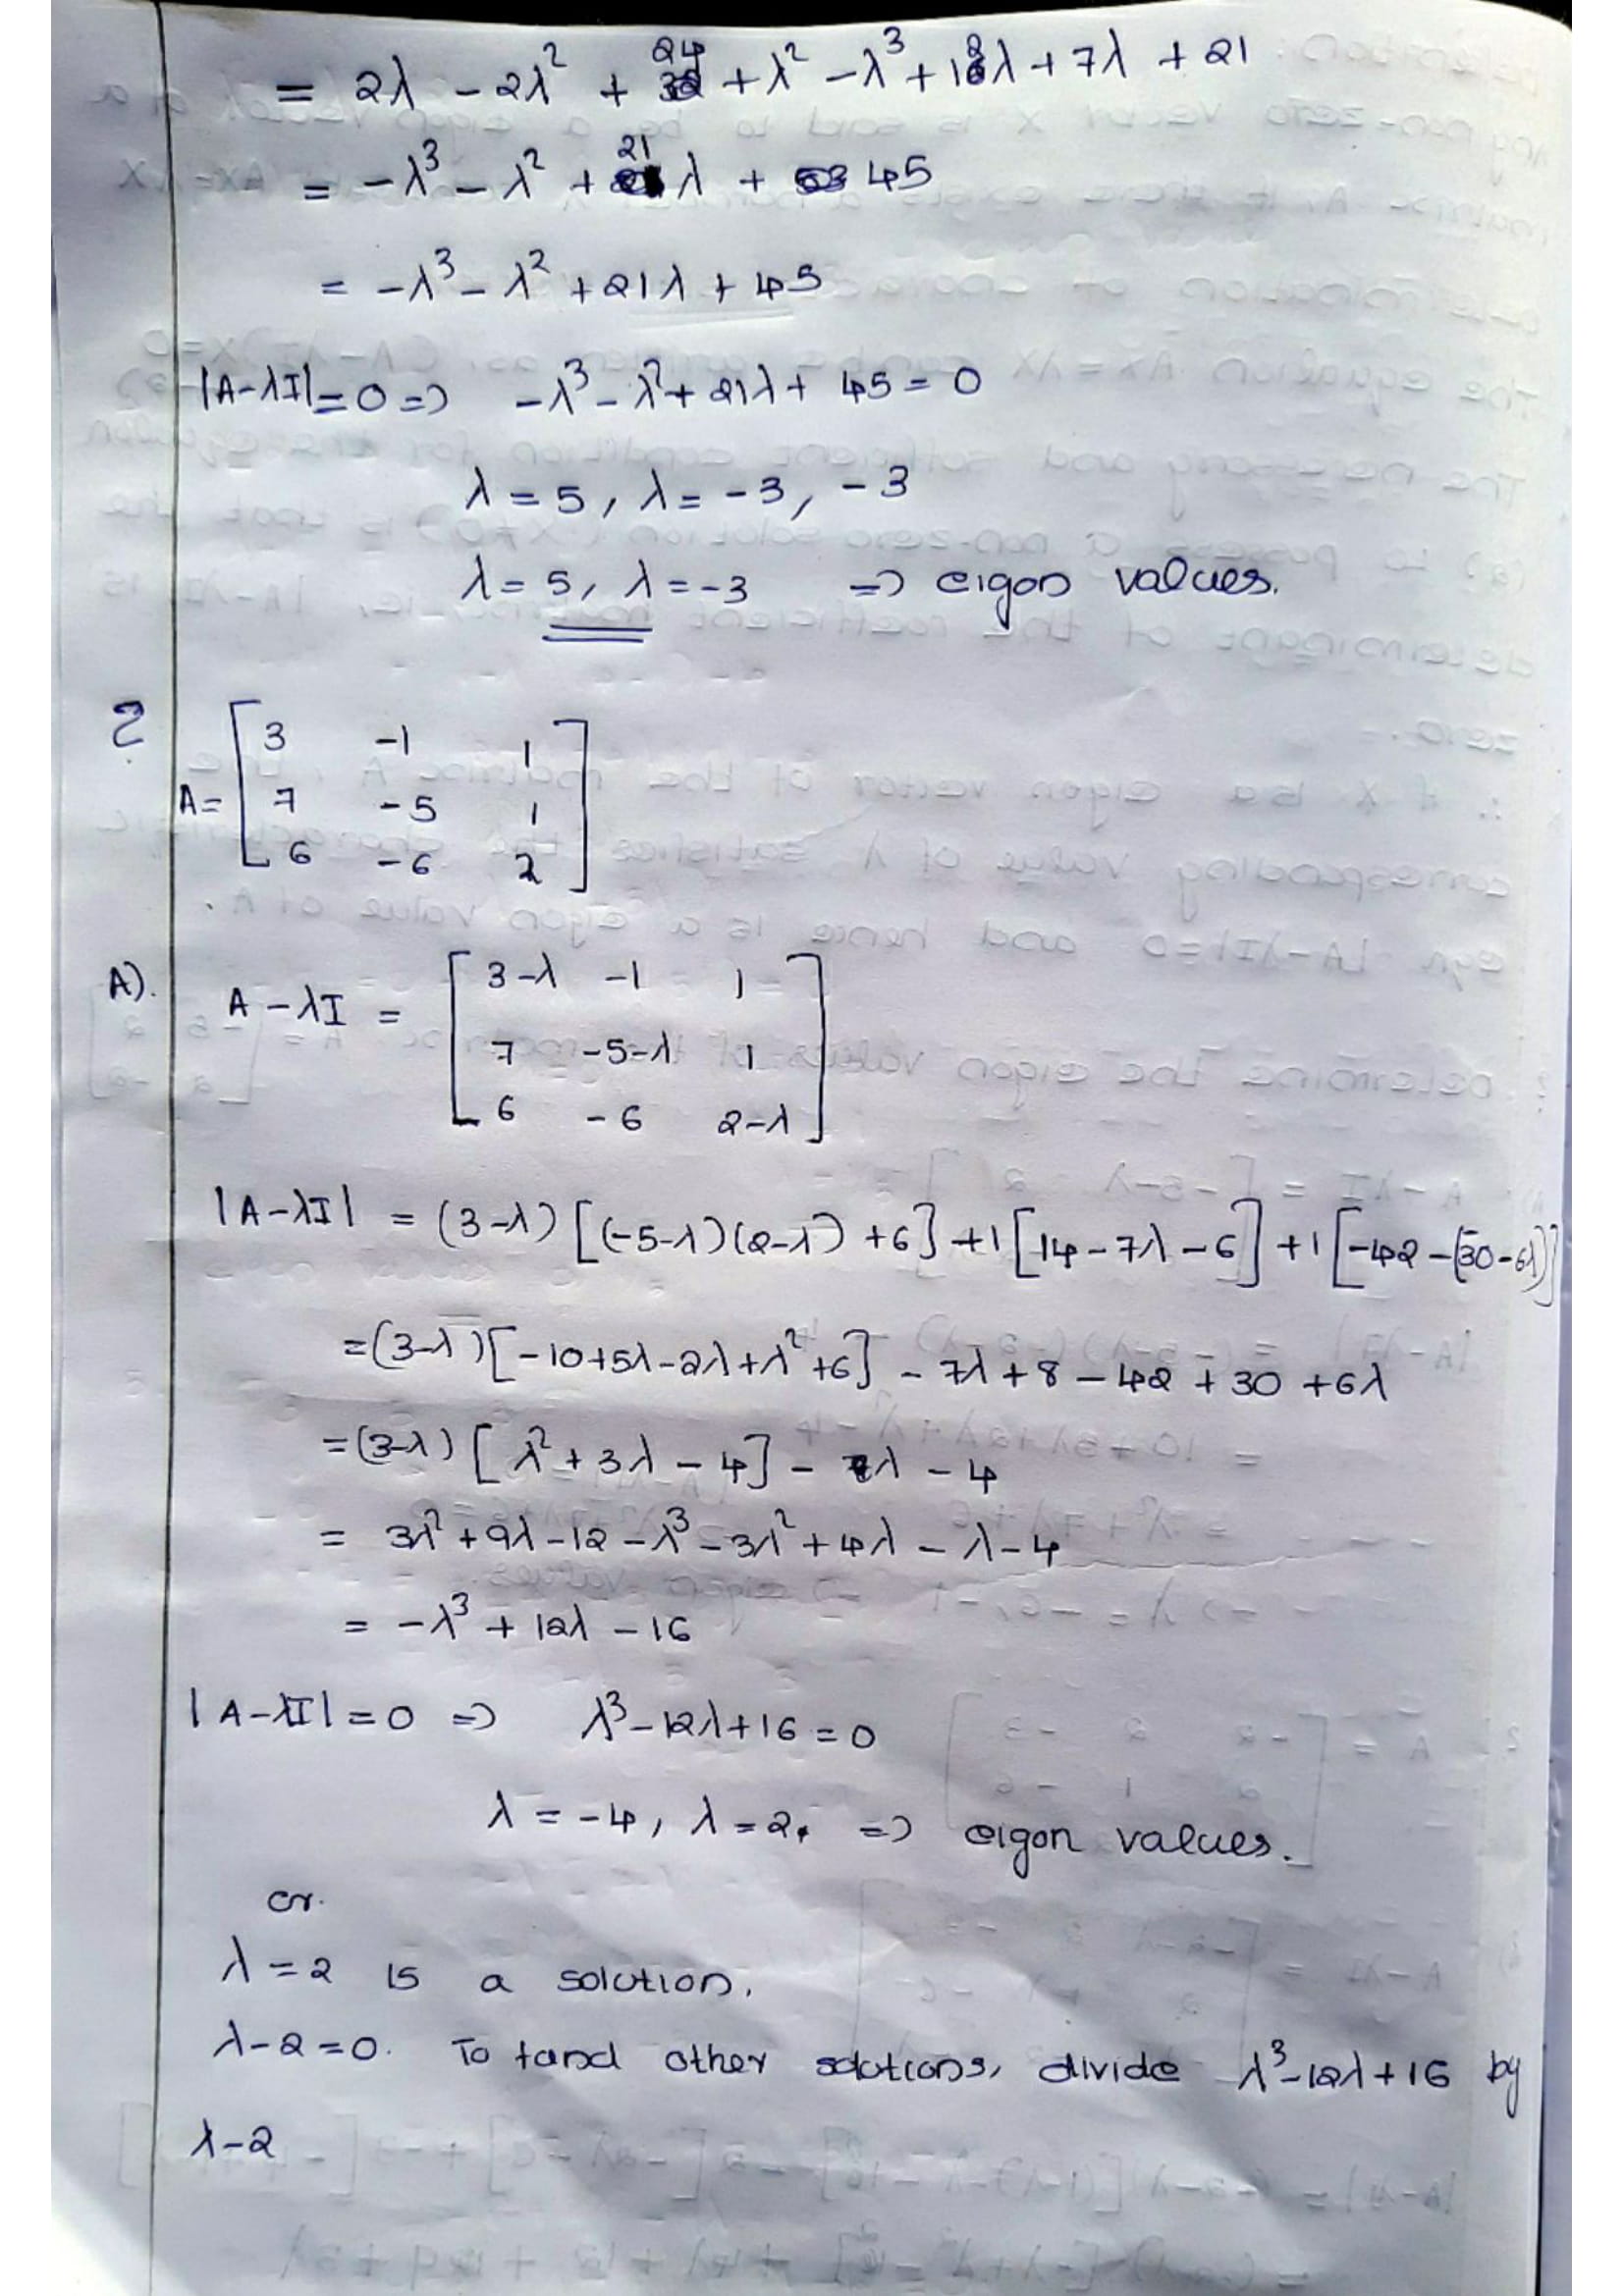 = 2λ - 2λ² + 24 + λ² - λ³ + 12λ + 7λ + 21
= -λ³ - λ² + 21λ + 45
= -λ³ - λ² + 21λ + 45
|A-λI| = 0 => -λ³ - λ² + 21λ + 45 = 0
λ = 5, λ = -3, -3
λ = 5, λ = -3 => eigon values.
? A = [3 -1 1
7 -5 1
6 -6 2]
A). A - λI = [3-λ -1 1
7 -5-λ 1
6 -6 2-λ]
|A-λI| = (3-λ)[(-5-λ)(2-λ) +6] +1[14-7λ-6] +1[-42-(-30-6λ)]
=(3-λ)[-10+5λ-2λ+λ²+6] - 7λ+8 - 42 + 30 + 6λ
=(3-λ)[λ² + 3λ - 4] - λ - 4
= 3λ² + 9λ - 12 - λ³ - 3λ² + 4λ - λ - 4
= -λ³ + 12λ - 16
|A-λI| = 0 => λ³ - 12λ + 16 = 0
λ = -4, λ = 2. => eigon values.
or.
λ = 2 is a solution.
λ-2 = 0. To find other solutions, divide λ³-12λ+16 by
λ-2